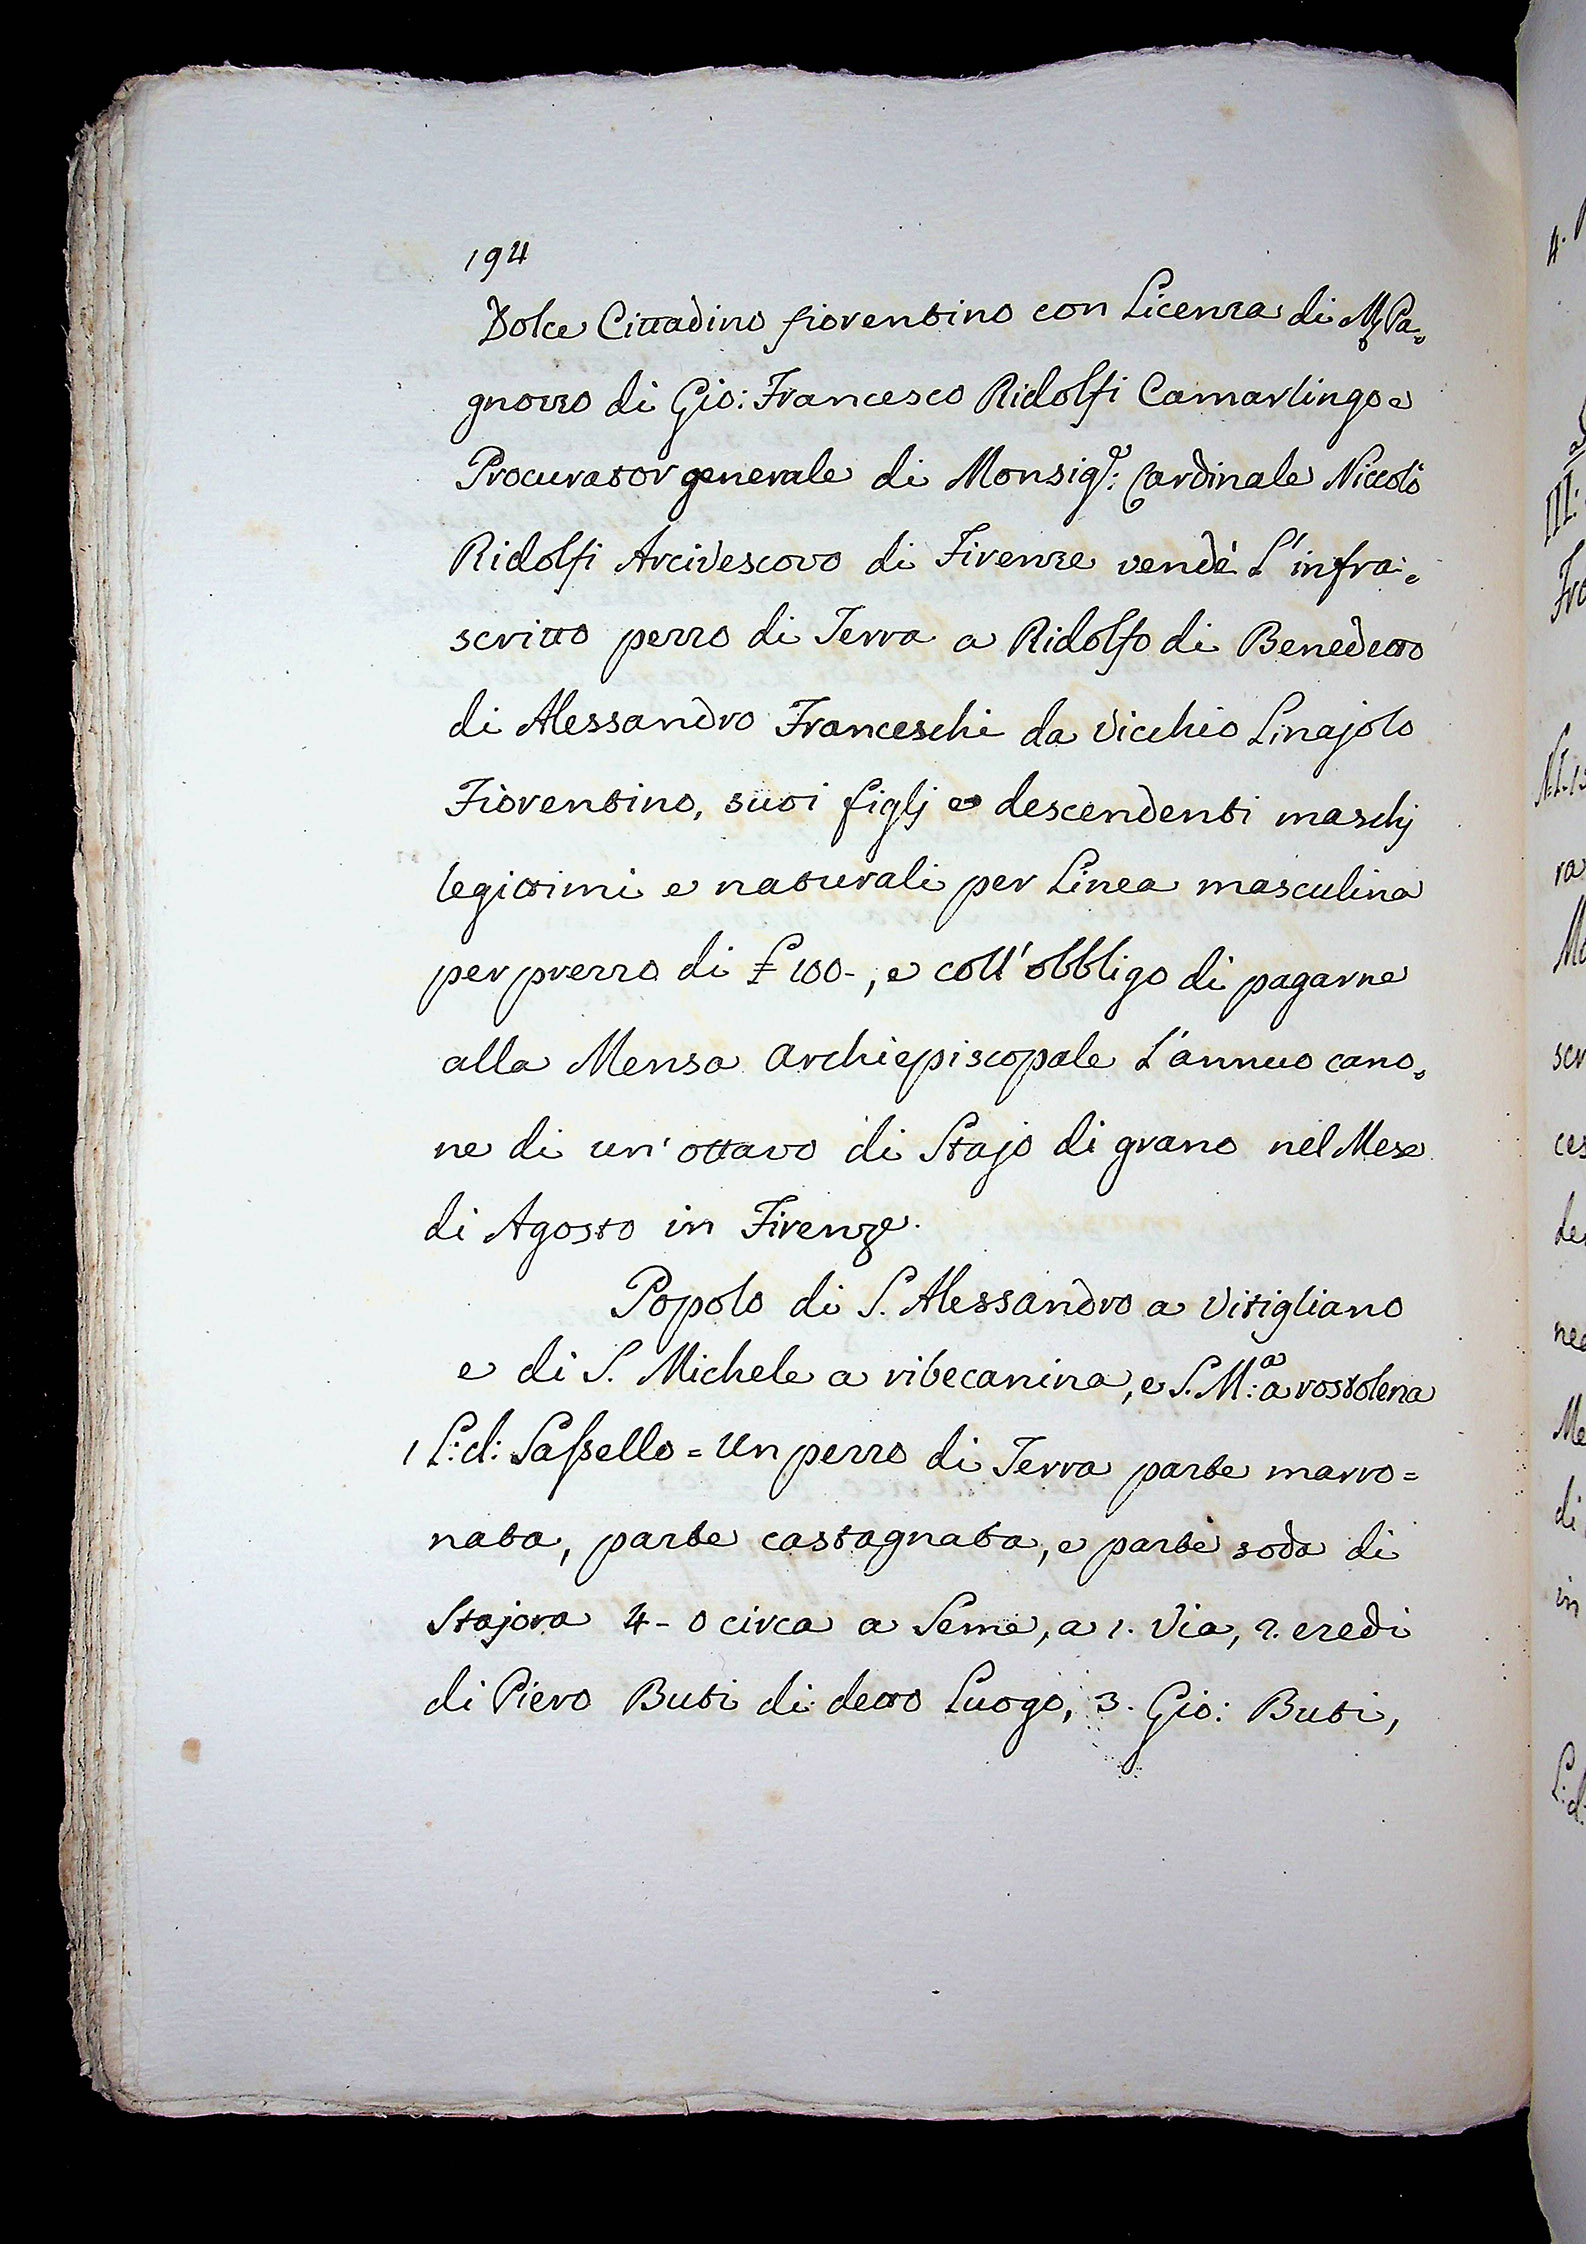 194
Dolce Cittadino fiorentino con Licenza di M. Pa=
gnozzo di Gio: Francesco Ridolfi Camarlingo e
Procurator generale di Monsig.e: Cardinale Niccolò
Ridolfi Arcivescovo di Firenze vendè L'infra=
scritto pezzo di Terra a Ridolfo di Benedetto
di Alessandro Franceschi da Vicchio Linajolo
Fiorentino, suoi figlj e descendenti maschj
legittimi e naturali per Linea masculina
per prezzo di £ 100-, e coll'obbligo di pagarne
alla Mensa Archiepiscopale L'annuo cano=
ne di un'ottavo di Stajo di grano nel Mese
di Agosto in Firenze.
Popolo di S. Alessandro a Vitigliano
e di S. Michele a ribecanina, e S. M:a a rostolena
1 L: d: Sassello = Un pezzo di Terra parte marro=
nata, parte castagnata, e parte soda di
Stajora 4-0 circa a Seme, a 1. Via, 2. eredi
di Piero Buti di detto Luogo, 3. Gio: Buti,